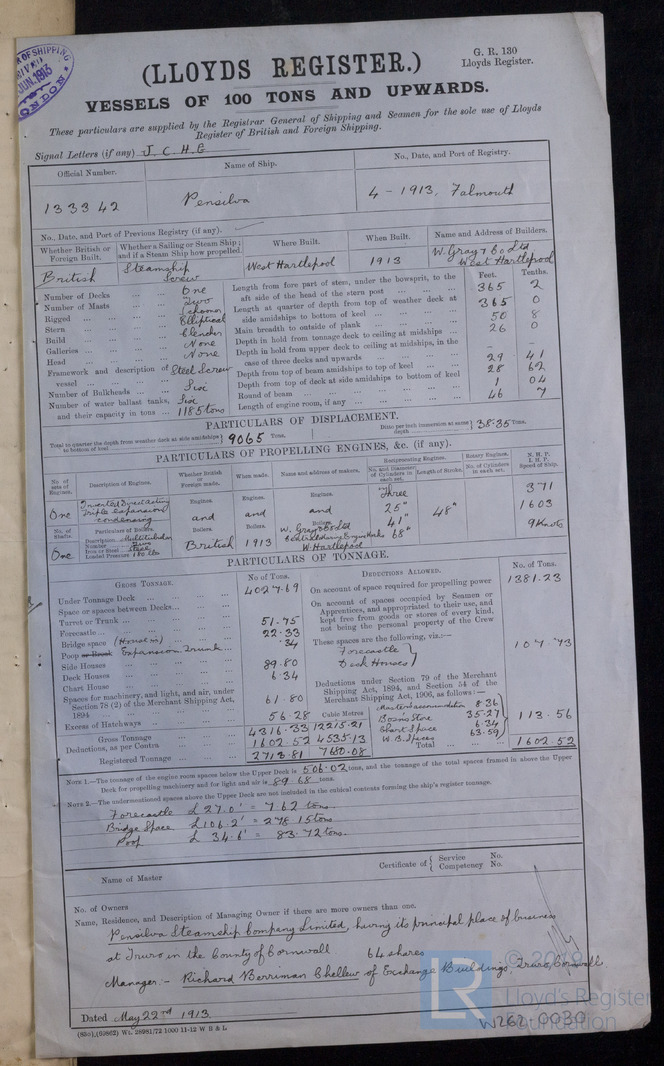 R OF SHIPPING
JUN. 1913
LONDON
(LLOYDS REGISTER.)
G. R. 130
Lloyds Register.
VESSELS OF 100 TONS AND UPWARDS.
These particulars are supplied by the Registrar General of Shipping and Seamen for the sole use of Lloyds
Register of British and Foreign Shipping.
Signal Letters (if any) J. C. H. G
Official Number. Name of Ship. No., Date, and Port of Registry.
133342 Pensilva 4 - 1913, Falmouth
No., Date, and Port of Previous Registry (if any).
Whether British or Foreign Built. Whether a Sailing or Steam Ship; and if a Steam Ship how propelled. Where Built. When Built. Name and Address of Builders.
British Steamship Screw West Hartlepool 1913 W. Gray & Co Ltd West Hartlepool
Feet. Tenths.
Number of Decks One
Number of Masts Two
Rigged Schooner
Stern Elliptical
Build Clencher
Galleries None
Head None
Framework and description of vessel Steel Screw
Number of Bulkheads Six
Number of water ballast tanks, and their capacity in tons Six 1185 tons
Length from fore part of stem, under the bowsprit, to the aft side of the head of the stern post 365 2
Length at quarter of depth from top of weather deck at side amidships to bottom of keel 365 0
Main breadth to outside of plank 50 8
Depth in hold from tonnage deck to ceiling at midships 26 0
Depth in hold from upper deck to ceiling at midships, in the case of three decks and upwards - -
Depth from top of beam amidships to top of keel 29 41
Depth from top of deck at side amidships to bottom of keel 28 62
Round of beam 1 04
Length of engine room, if any 46 7
PARTICULARS OF DISPLACEMENT.
Total to quarter the depth from weather deck at side amidships to bottom of keel 9065 Tons.
Ditto per inch immersion at same depth 38.35 Tons.
PARTICULARS OF PROPELLING ENGINES, &c. (if any).
No. of sets of Engines. Description of Engines. Whether British or Foreign made. When made. Name and address of makers. Reciprocating Engines. No. and Diameter of Cylinders in each set. Length of Stroke. Rotary Engines. No. of Cylinders in each set. N. H. P. I. H. P. Speed of Ship.
One Inverted Direct Acting Triple Expansion condensing
Engines. Engines. Engines. Three
and and and 25" 41" 68" 48" 371 1603 9 Knots
No. of Shafts. Particulars of Boilers. Boilers. Boilers. Boilers.
One Description Multitubular
Number
Iron or Steel Steel
Loaded Pressure 180 lbs
British 1913 W. Gray & Co Ltd
W. Hartlepool
PARTICULARS OF TONNAGE.
GROSS TONNAGE. No of Tons.
Under Tonnage Deck 4027.69
Space or spaces between Decks
Turret or Trunk
Forecastle 51.75
Bridge space (House in) 22.33
Poop or Break Expansion Trunk .34
Side Houses
Deck Houses 89.80
Chart House 6.34
Spaces for machinery, and light, and air, under Section 78 (2) of the Merchant Shipping Act, 1894 61.80
Excess of Hatchways 56.28 Cubic Metres
Gross Tonnage 4316.33 12215.21
Deductions, as per Contra 1602.52 4535.13
Registered Tonnage 2713.81 7680.08
DEDUCTIONS ALLOWED. No. of Tons.
On account of space required for propelling power 1381.23
On account of spaces occupied by Seamen or Apprentices, and appropriated to their use, and kept free from goods or stores of every kind, not being the personal property of the Crew
These spaces are the following, viz.:—
Forecastle
Deck Houses 107.73
Deductions under Section 79 of the Merchant Shipping Act, 1894, and Section 54 of the Merchant Shipping Act, 1906, as follows:—
Master's accommodation 8.36
Boson's Store 35.27
Chart Space 6.34
W. B. Space 63.59
113.56
Total 1602.52
NOTE 1.—The tonnage of the engine room spaces below the Upper Deck is 506.02 tons, and the tonnage of the total spaces framed in above the Upper
Deck for propelling machinery and for light and air is 89.68 tons.
NOTE 2.—The undermentioned spaces above the Upper Deck are not included in the cubical contents forming the ship's register tonnage.
Forecastle £ 27.0' = 7.62 tons.
Bridge Space £ 106.2' = 278.15 tons
Poop £ 34.6' = 83.72 tons.
Name of Master Certificate of { Service No. Competency No.
No. of Owners
Name, Residence, and Description of Managing Owner if there are more owners than one.
Pensilva Steamship Company Limited, having its principal place of business
at Truro in the County of Cornwall 64 shares
Manager:- Richard Berriman Chellew of Exchange Buildings, Truro, Cornwall
Dated May 22nd 1913
(83o).(69862) Wt. 28981/72 1000 11-12 W B & L
© 2019
LR
Lloyd's Register
Foundation
W262-0030